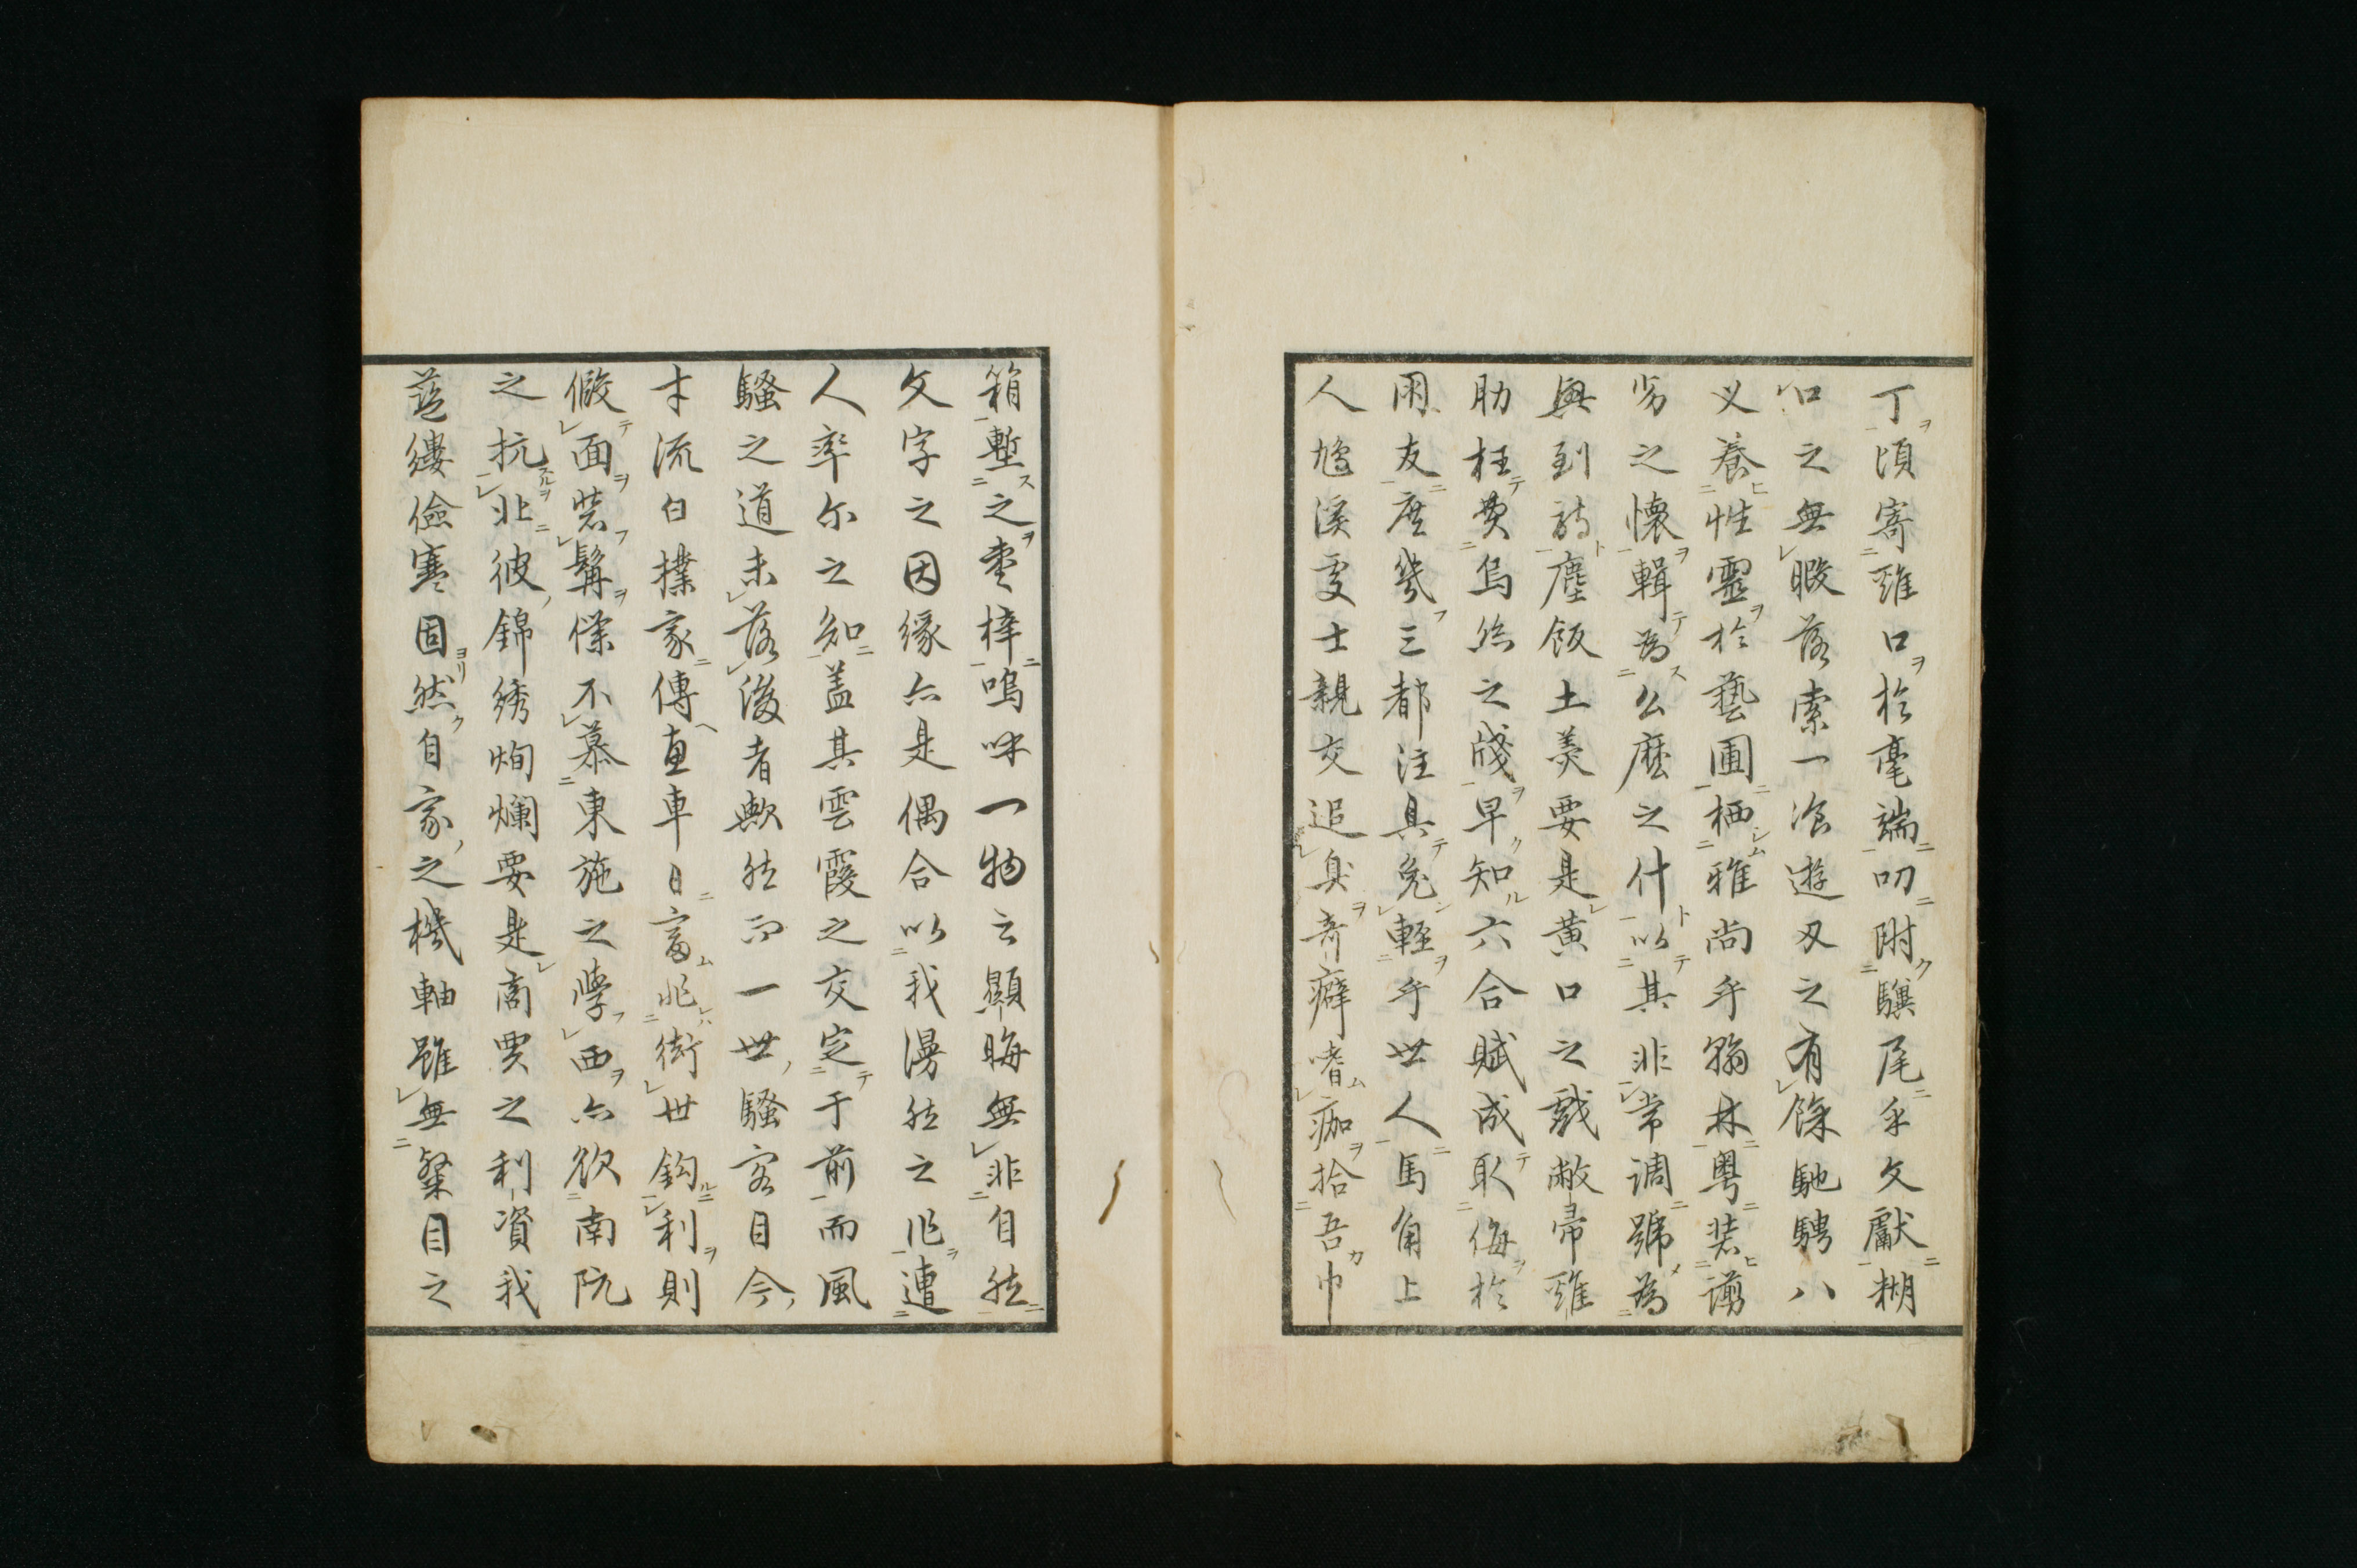 丁頃寄雖口於毫端叨附驥尾乎文獻糊
口之無暇落索一飡遊刃之有餘馳騁八
义養性靈於藝圃栖雅尚乎翰林粤裝謭
劣之懷輯為幺麼之什以其非常調號為
興到詩塵飯土羹要是黄口之戯敝帚雖
肋枉費烏絲之牋早知六合賦成取侮於
用友庶幾三都注具免輕乎世人馬角上
人鳩溪處士親交追臭奇癖嗜痂拾吾巾
箱塹之棗梓嗚呼一物云顯晦無非自然
文字之因縁亦是偶合以我漫然之作遭
人率尓之知盖其雲霞之交定于前而風
騷之道未落後者歟然而一世騷客目今
才流白撲家傳直車日富非衒世鈎利則
假面裝髯僕不慕東施之學西亦欲南阮
之抗北彼錦綉炯爛要是商賈之利資我
藍縷儉寒固然自家之機軸雖無粲目之